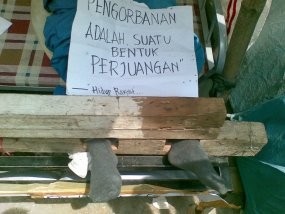 PENGORBANAN
ADALAH, SUATU
BENTUK
PERJUANGAN"
— Hidup